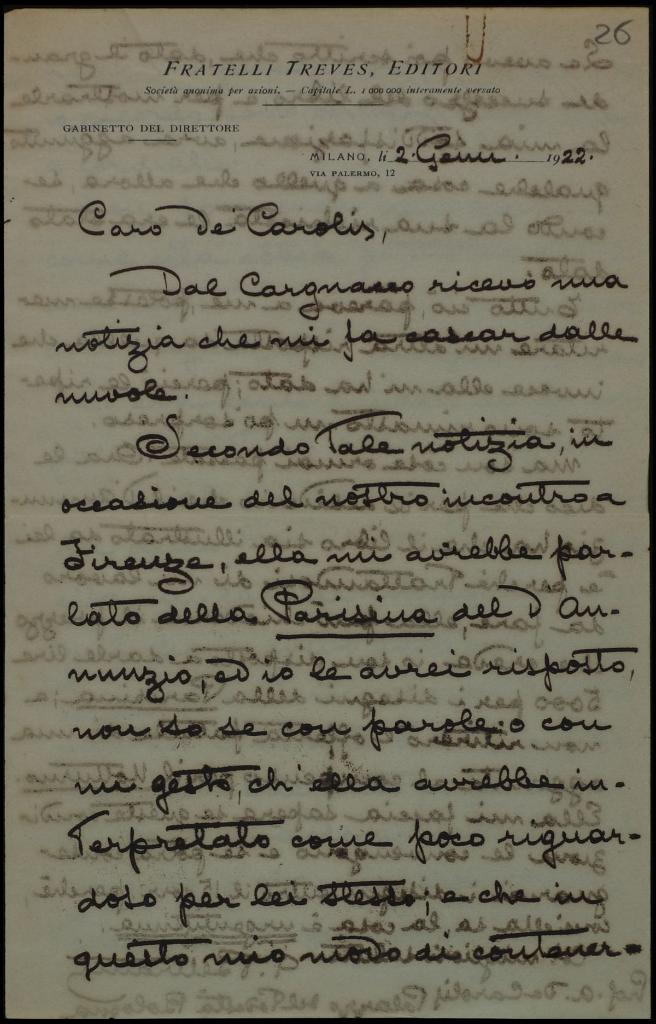 26
FRATELLI TREVES, EDITORI
Società anonima per azioni. — Capitale L. 1 000 000 interamente versato
GABINETTO DEL DIRETTORE
MILANO, li 2. Genn. 1922.
VIA PALERMO, 12
Caro De Carolis,
Dal Cargnacco ricevo una
notizia che mi fa cascar dalle
nuvole.
Secondo tale notizia, in
occasione del nostro incontro a
Firenze, ella mi avrebbe par-
lato della Parisina del D'An-
nunzio, ed io le avrei risposto,
non so se con parole o con
un gesto, ch'ella avrebbe in-
terpretato come poco riguar-
doso per lei stesso; e che in
questo mio modo di contener=